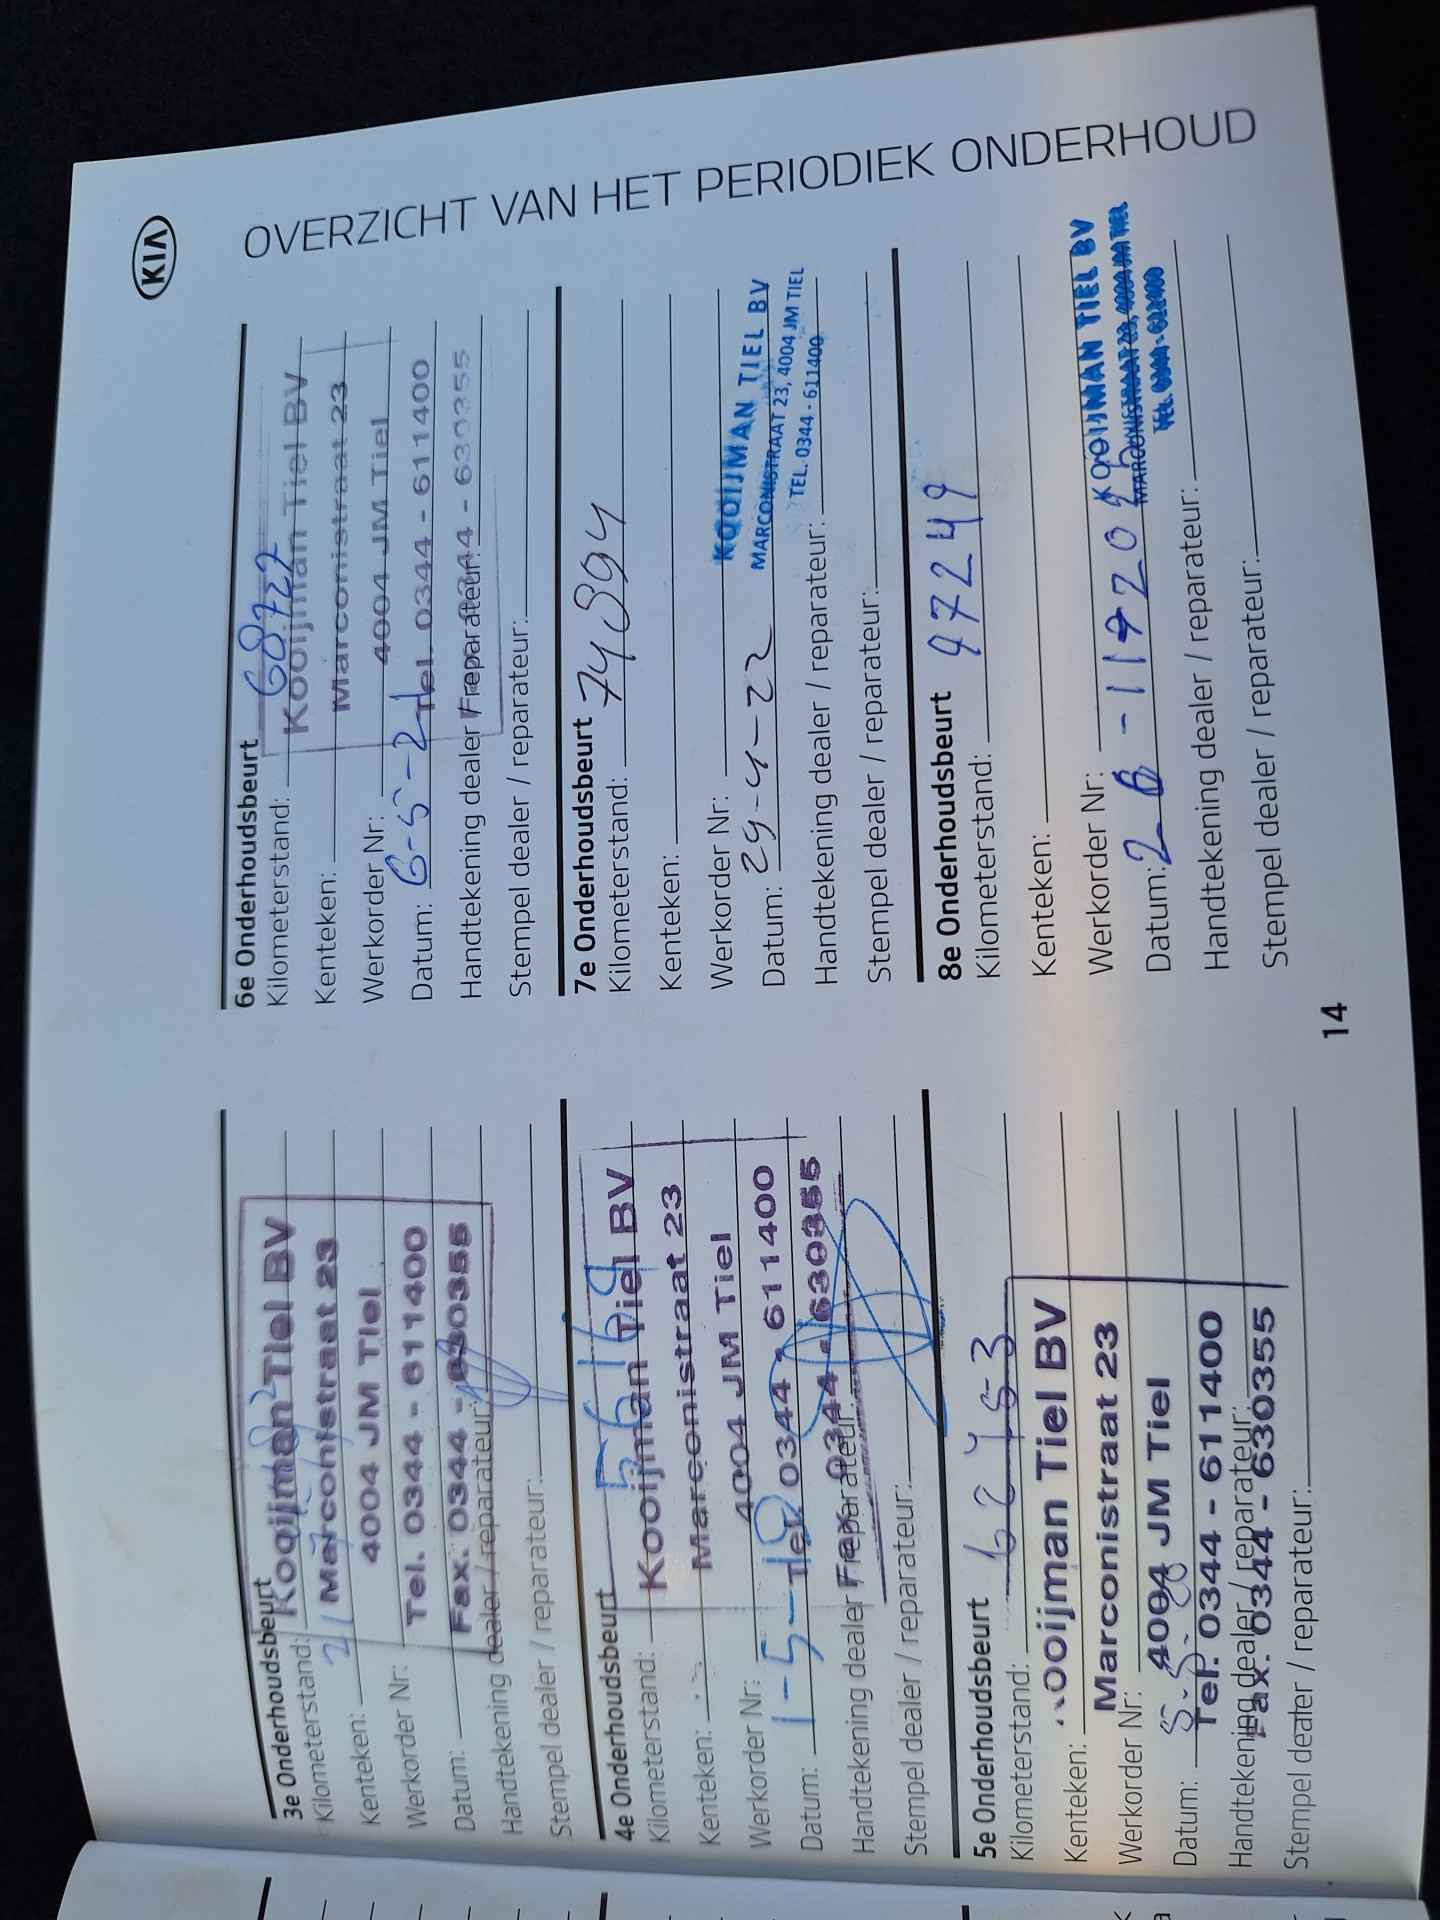 KIA
OVERZICHT VAN HET PERIODIEK ONDERHOUD
3e Onderhoudsbeurt
Kilometerstand:
Kenteken:
Werkorder Nr:
Datum:
Handtekening dealer / reparateur:
Stempel dealer / reparateur:
Kooijman Tiel BV
Marconistraat 23
4004 JM Tiel
Tel. 0344 - 611400
Fax. 0344 - 630355
4e Onderhoudsbeurt
Kilometerstand: 56169
Kenteken:
Werkorder Nr:
Datum: 1-5-19
Handtekening dealer / reparateur:
Stempel dealer / reparateur:
Kooijman Tiel BV
Marconistraat 23
4004 JM Tiel
Tel. 0344 - 611400
Fax. 0344 - 630355
5e Onderhoudsbeurt
Kilometerstand:
Kenteken:
Werkorder Nr:
Datum:
Handtekening dealer / reparateur:
Stempel dealer / reparateur:
ooijman Tiel BV
Marconistraat 23
4004 JM Tiel
Tel. 0344 - 611400
Fax. 0344 - 630355
6e Onderhoudsbeurt
Kilometerstand: 68727
Kenteken:
Werkorder Nr:
Datum: 6-5-21
Handtekening dealer / reparateur:
Stempel dealer / reparateur:
Kooijman Tiel BV
Marconistraat 23
4004 JM Tiel
Tel. 0344 - 611400
Fax. 0344 - 630355
7e Onderhoudsbeurt
Kilometerstand: 74894
Kenteken:
Werkorder Nr:
Datum: 29-4-22
Handtekening dealer / reparateur:
Stempel dealer / reparateur:
KOOIJMAN TIEL BV
MARCONISTRAAT 23, 4004 JM TIEL
TEL. 0344 - 611400
8e Onderhoudsbeurt
Kilometerstand: 97249
Kenteken:
Werkorder Nr:
Datum:
Handtekening dealer / reparateur:
Stempel dealer / reparateur:
KOOIJMAN TIEL BV
MARCONISTRAAT 23, 4004 JM TIEL
TEL. 0344 - 611400
14